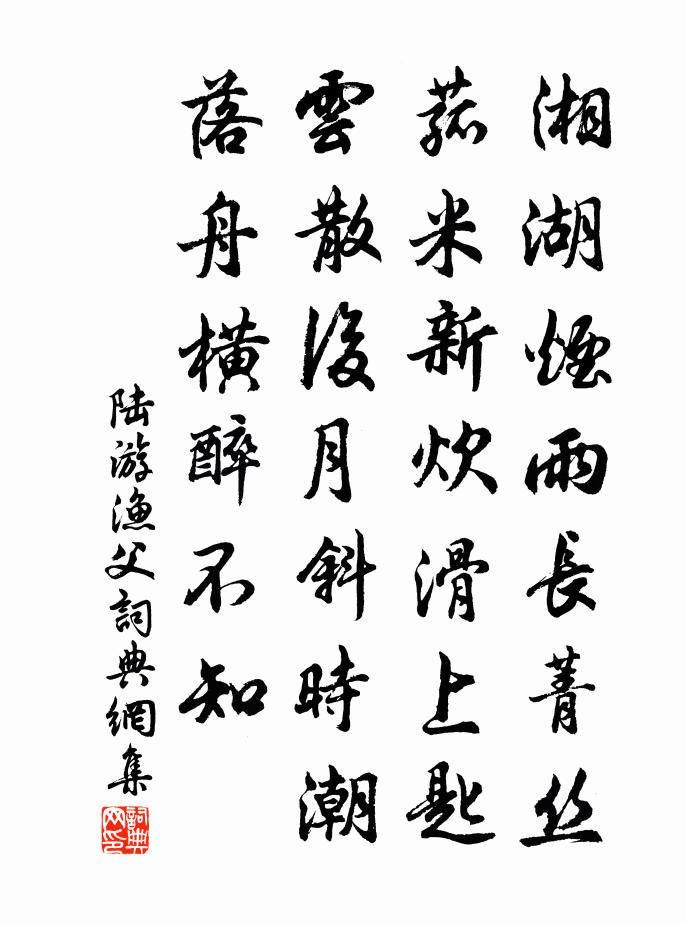 湘湖煙雨長菁丝
菰米新炊滑上匙
雲散後月斜時潮
落舟橫醉不知
陆游渔父詞典網集
詞典网印